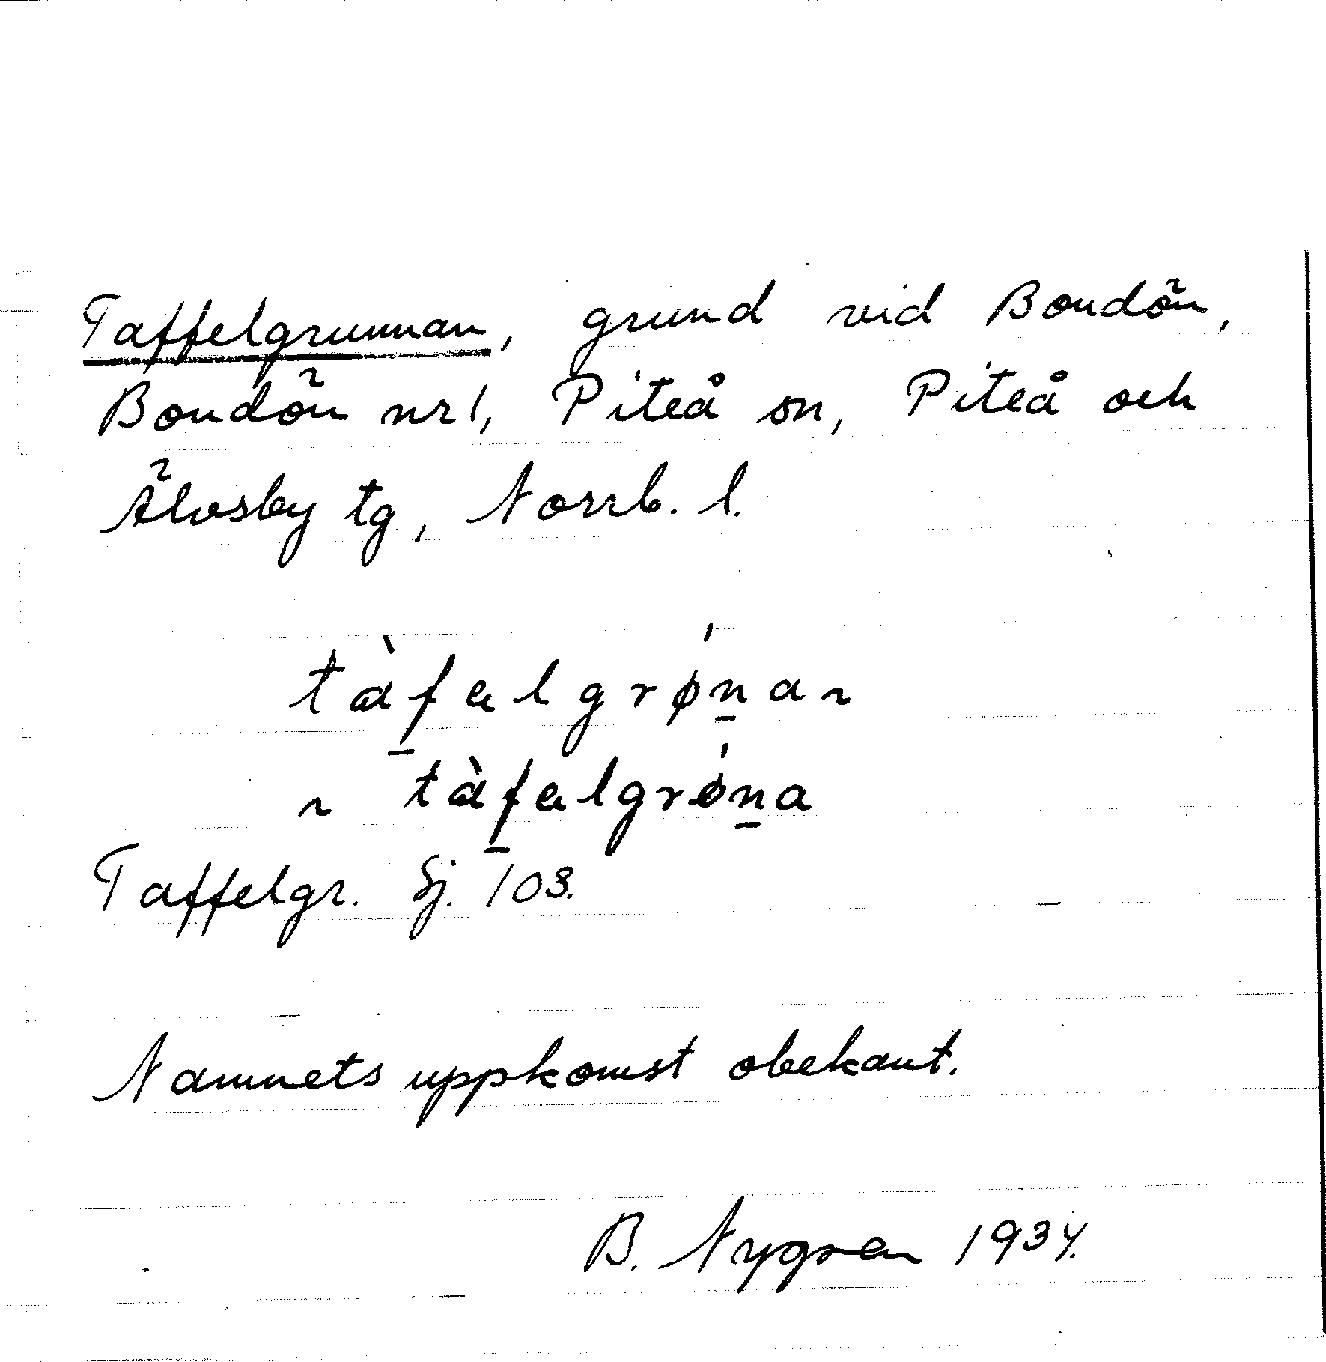 Taffelgrunnan, grund vid Bondön,
Bondön nr 1, Piteå sn, Piteå och
Älvsby tg, Norrb. l.
tàf̱ælgrǿṉa ~
~ tàf̱ælgrǿṉa
Taffelgr. Sj. 103.
Namnets uppkomst obekant.
B. Nygren 1934.